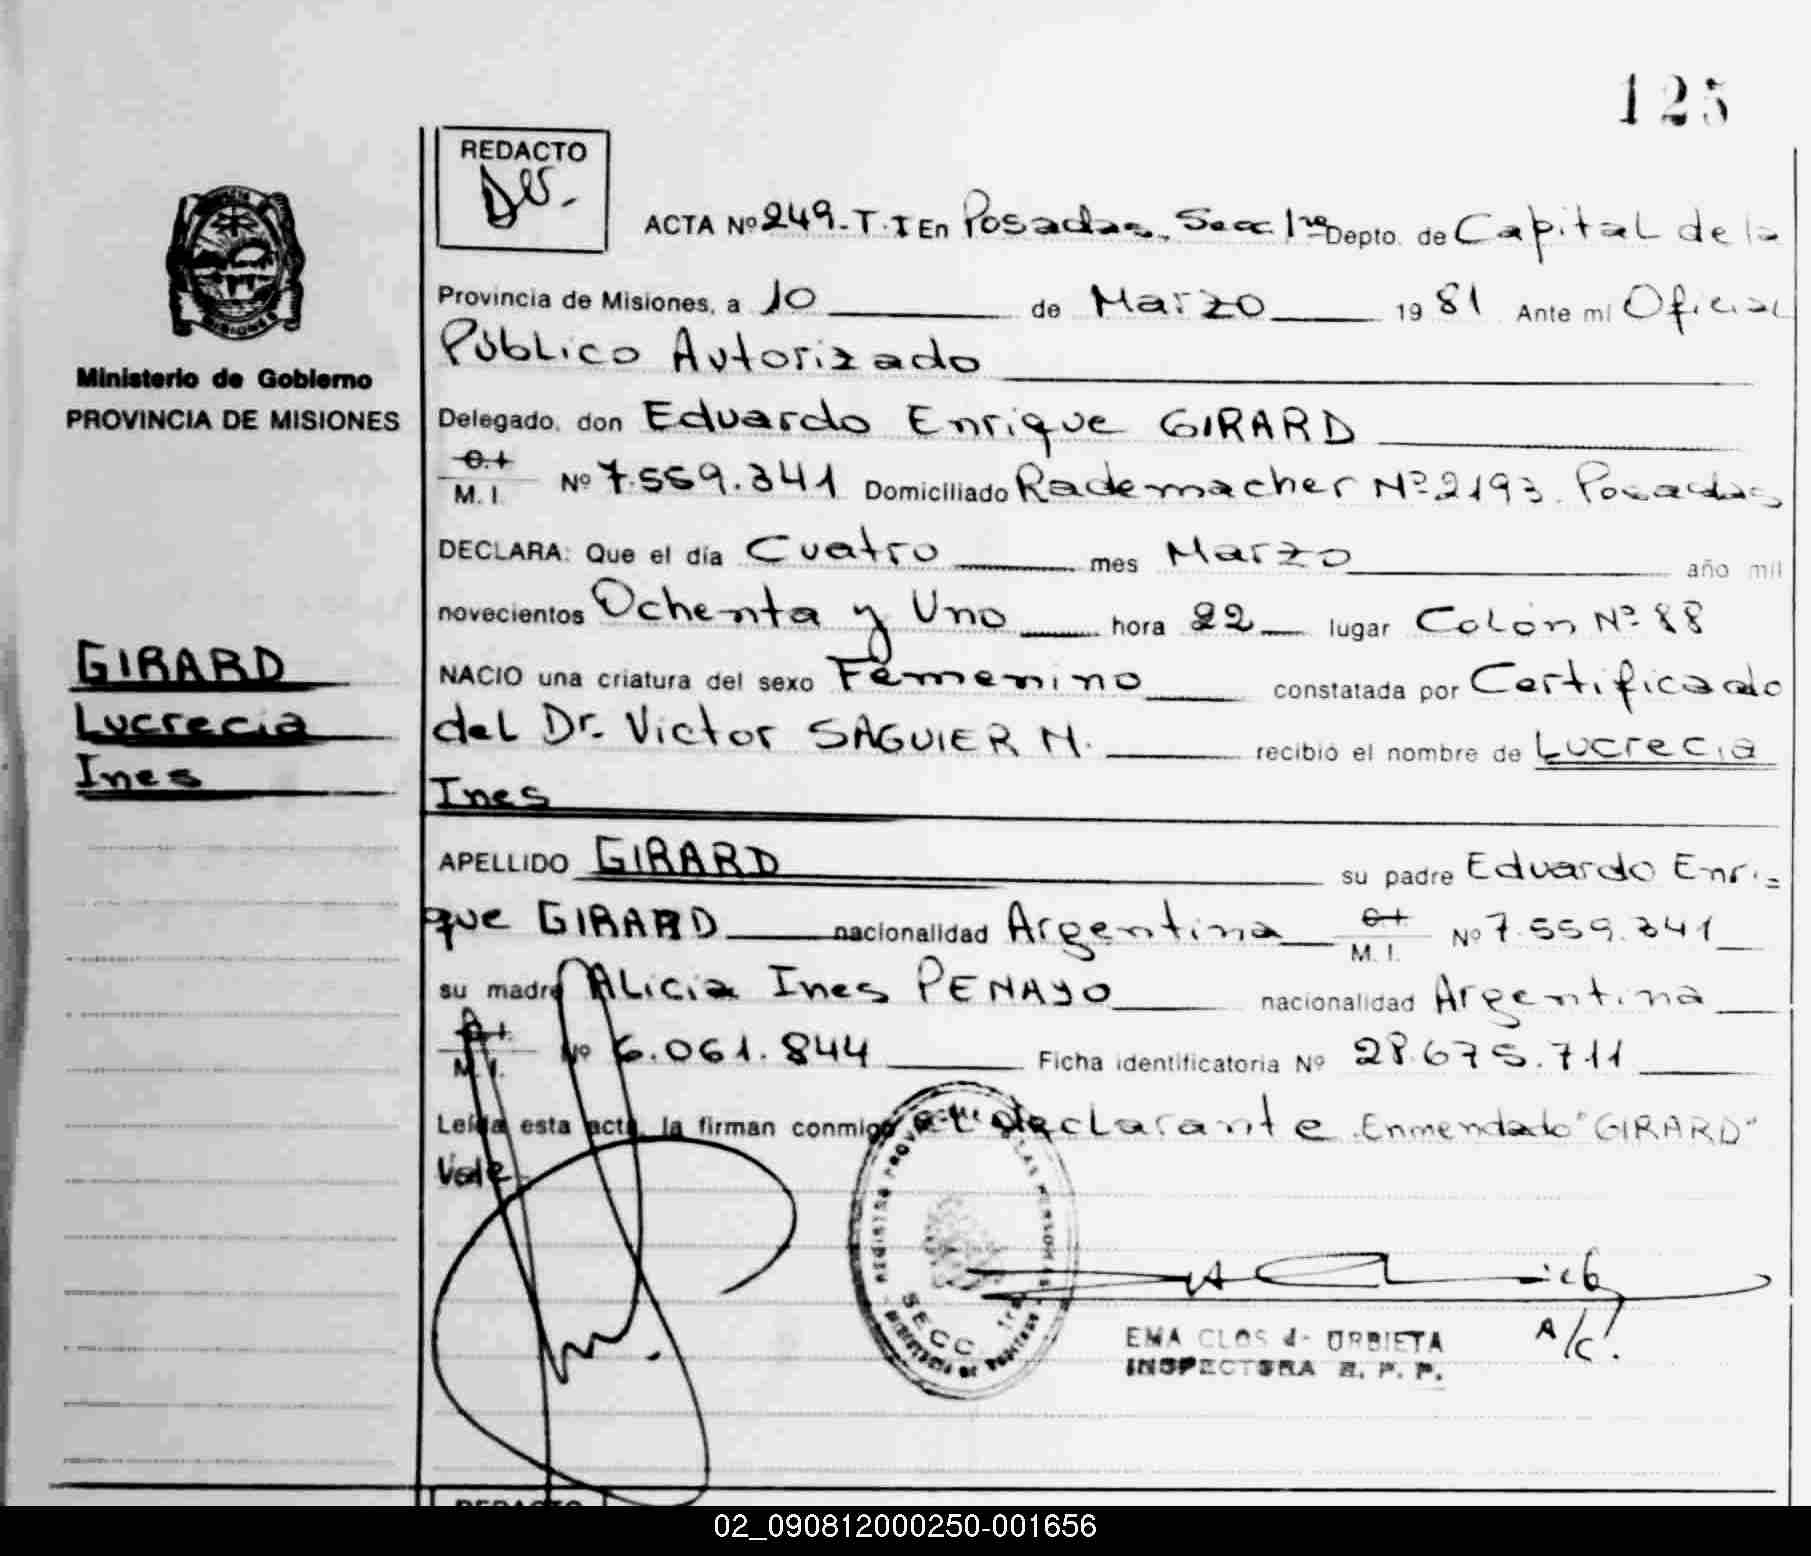 125
REDACTO
ACTA Nº 249-T.I En Posadas, Secc 1ra Depto. de Capital de la
Provincia de Misiones, a 10 de Marzo 1981 Ante mi Oficial
Público Autorizado
Ministerio de Gobierno
PROVINCIA DE MISIONES
Delegado, don Eduardo Enrique GIRARD
M. I. Nº 7.559.341 Domiciliado Rademacher Nº 2193. Posadas
DECLARA: Que el día Cuatro mes Marzo año mil
novecientos Ochenta y Uno hora 22 lugar Colón Nº 88
GIRARD
Lucrecia
Ines
NACIO una criatura del sexo Femenino constatada por Certificado
del Dr. Victor SAGUIER M. recibió el nombre de Lucrecia
Ines
APELLIDO GIRARD su padre Eduardo Enri=
que GIRARD nacionalidad Argentina M. I. Nº 7.559.341
su madre Alicia Ines PENAYO nacionalidad Argentina
M. I. Nº 6.061.844 Ficha identificatoria Nº 28.675.711
Leída esta acta, la firman conmigo el declarante. Enmendado "GIRARD"
Vale
SECC 1ra
A/C.
EMA CLOS d- URBIETA
INSPECTORA R. P. P.
REDACTO
02_090812000250-001656